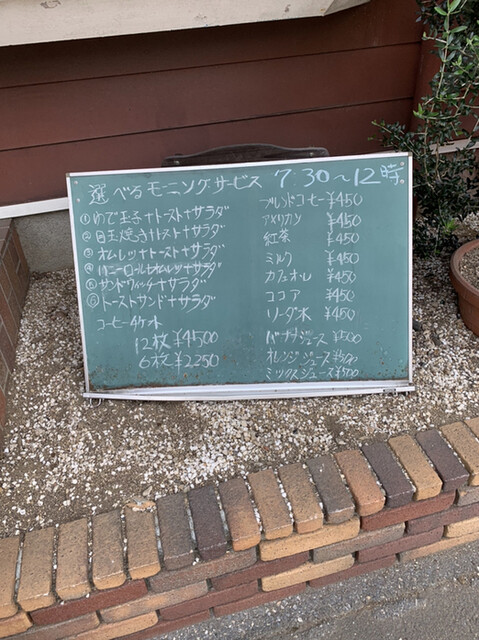 選べるモーニングサービス 7:30〜12時
①ゆで玉子+トースト+サラダ
②目玉焼き+トースト+サラダ
③オムレツ+トースト+サラダ
④バニーロール+オムレツ+サラダ
⑤サンドウィッチ+サラダ
⑥トーストサンド+サラダ
コーヒーチケット
12枚¥4500
6枚¥2250
ブレンドコーヒー¥450
アメリカン ¥450
紅茶 ¥450
ミルク ¥450
カフェオレ ¥450
ココア ¥450
ソーダ水 ¥450
バナナジュース ¥500
オレンジジュース ¥500
ミックスジュース ¥500